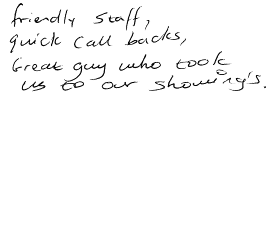 friendly staff,
quick call backs,
Great guy who took
us to our showing's.